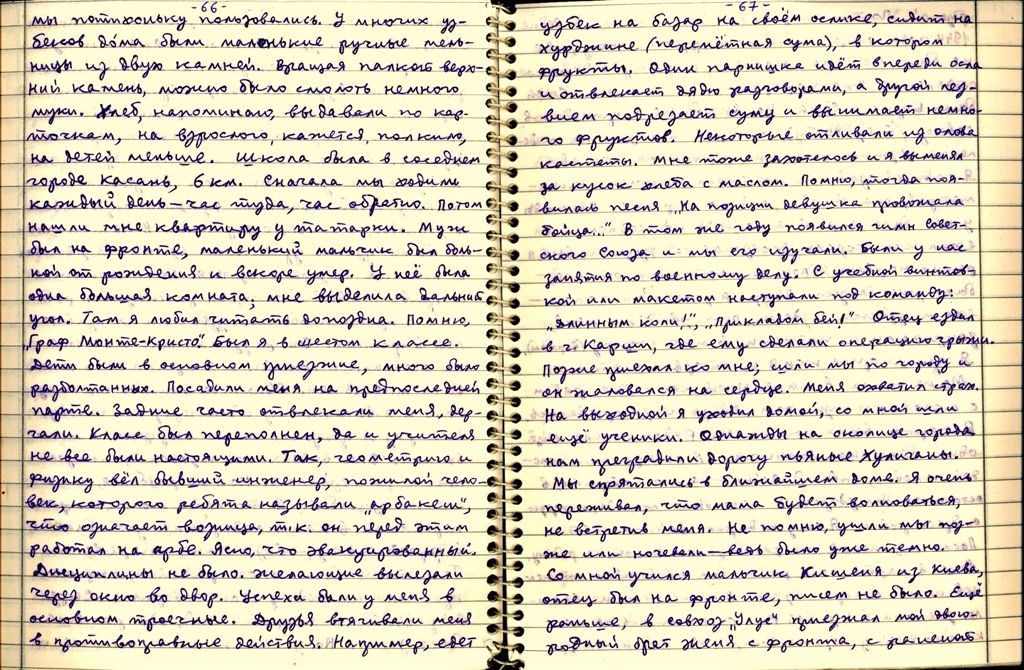 -66-
мы потихоньку пользовались. У многих уз-
беков дома были маленькие ручные мель-
ницы из двух камней. Вращая палкой верх-
ний камень, можно было смолоть немного
муки. Хлеб, напоминаю, выдавали по кар-
точкам, на взрослого, кажется, полкило,
на детей меньше. Школа была в соседнем
городе Касань, 6 км. Сначала мы ходили
каждый день – час туда, час обратно. Потом
нашли мне квартиру у татарки. Муж
был на фронте, маленький мальчик был боль-
ной от рождения и вскоре умер. У неё была
одна большая комната, мне выделила дальний
угол. Там я любил читать допоздна. Помню,
„Граф Монте-Кристо". Был я в шестом классе.
Дети были в основном приезжие, много было
разболтанных. Посадили меня на предпоследней
парте. Задние часто отвлекали меня, дер-
гали. Класс был переполнен, да и учителя
не все были настоящими. Так, геометрию и
физику вёл бывший инженер, пожилой чело-
век, которого ребята называли „арбакеш",
что означает возница, т.к. он перед этим
работал на арбе. Ясно, что эвакуированный.
Дисциплины не было. Желающие вылезали
через окно во двор. Успехи были у меня в
основном троечные. Друзья втягивали меня
в противоправные действия. Например, едет
-67-
узбек на базар на своём ослике, сидит на
хурджине (перемётная сума), в котором
фрукты. Один парнишка идёт впереди осла
и отвлекает дядю разговорами, а другой лез-
вием подрезает суму и вынимает немно-
го фруктов. Некоторые отливали из олова
кастеты. Мне тоже захотелось и я выменял
за кусок хлеба с маслом. Помню, тогда поя-
вилась песня „На позиции девушка провожала
бойца..." В том же году появился гимн Совет-
ского Союза и мы его изучали. Были у нас
занятия по военному делу. С учебной винтов-
кой или макетом наступали под команду:
„Длинным коли!", „Прикладом бей!" Отец ездил
в г. Карши, где ему сделали операцию грыжи.
Позже приехал ко мне; шли мы по городу и
он жаловался на сердце. Меня охватил страх.
На выходной я уходил домой, со мной шли
ещё ученики. Однажды на околице города
нам преградили дорогу пьяные хулиганы.
Мы спрятались в ближайшем доме. Я очень
переживал, что мама будет волноваться,
не встретив меня. Не помню, ушли мы поз-
же или ночевали – ведь было уже темно.
Со мной учился мальчик Хишеня из Киева,
отец был на фронте, писем не было. Ещё
раньше, в совхоз „Улус" приезжал мой двою-
родный брат Женя с фронта, с раненой